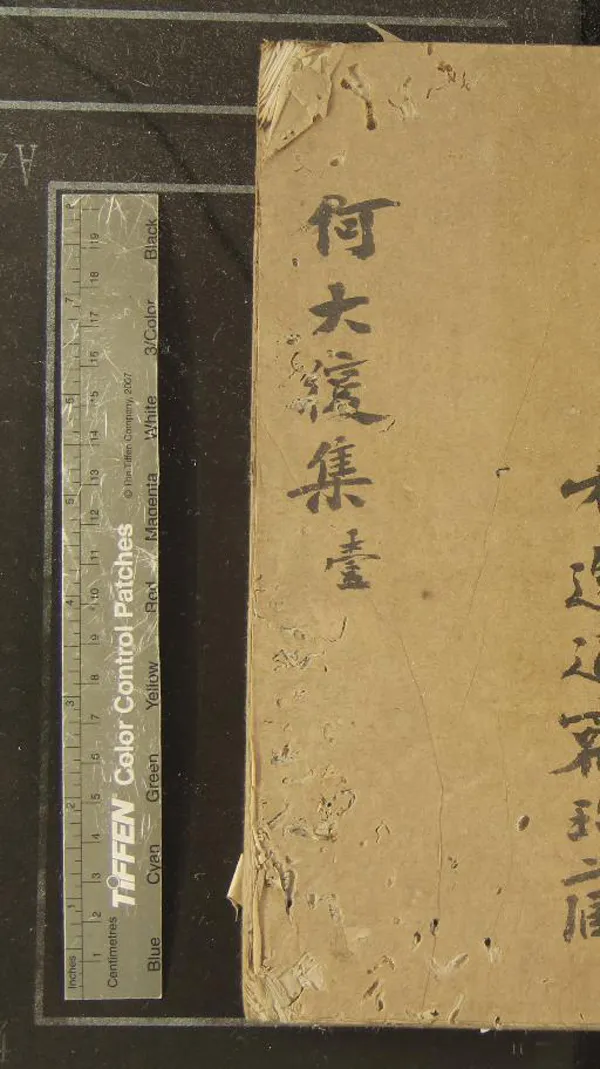 何大復集壹
Inches 1 2 3 4 5 6 7 8
Centimetres 1 2 3 4 5 6 7 8 9 10 11 12 13 14 15 16 17 18 19
TIFFEN Color Control Patches © The Tiffen Company, 2007
Blue Cyan Green Yellow Red Magenta White 3/Color Black